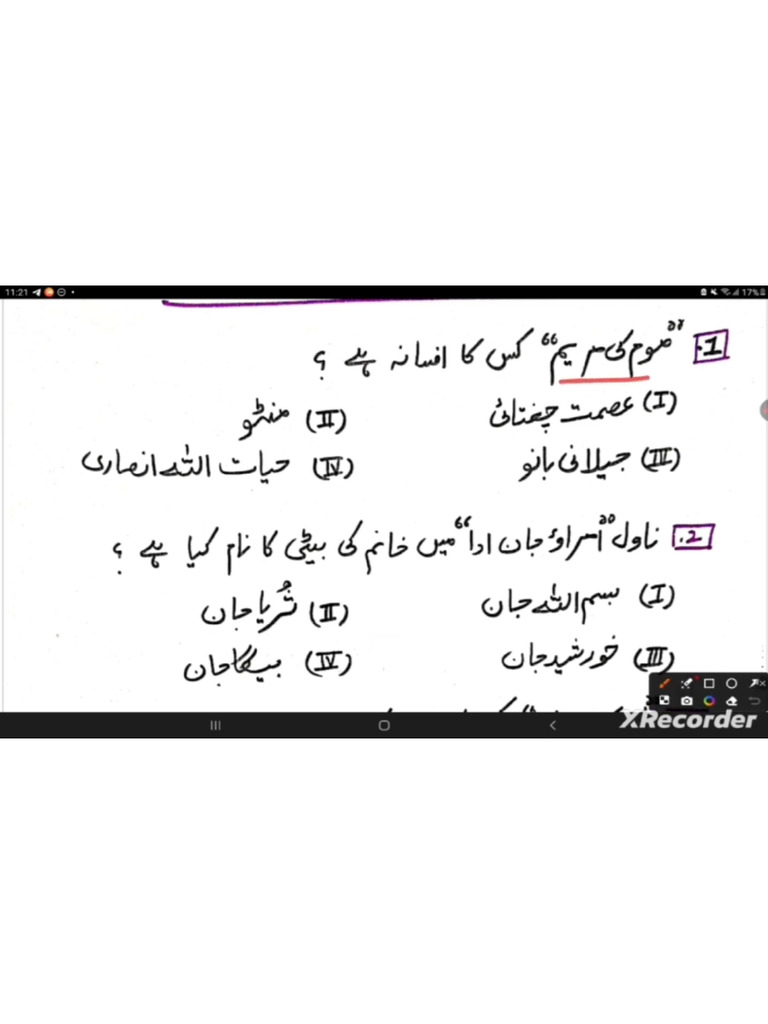 11:21 17%
1. "موم کی مریم" کس کا افسانہ ہے ؟
(I) عصمت چغتائی (II) منٹو
(III) جیلانی بانو (IV) حیات اللہ انصاری
2. ناول "امراؤ جان ادا" میں خانم کی بیٹی کا نام کیا ہے ؟
(I) بسم اللہ جان (II) ثُریا جان
(III) خورشید جان (IV) بیگا جان
XRecorder